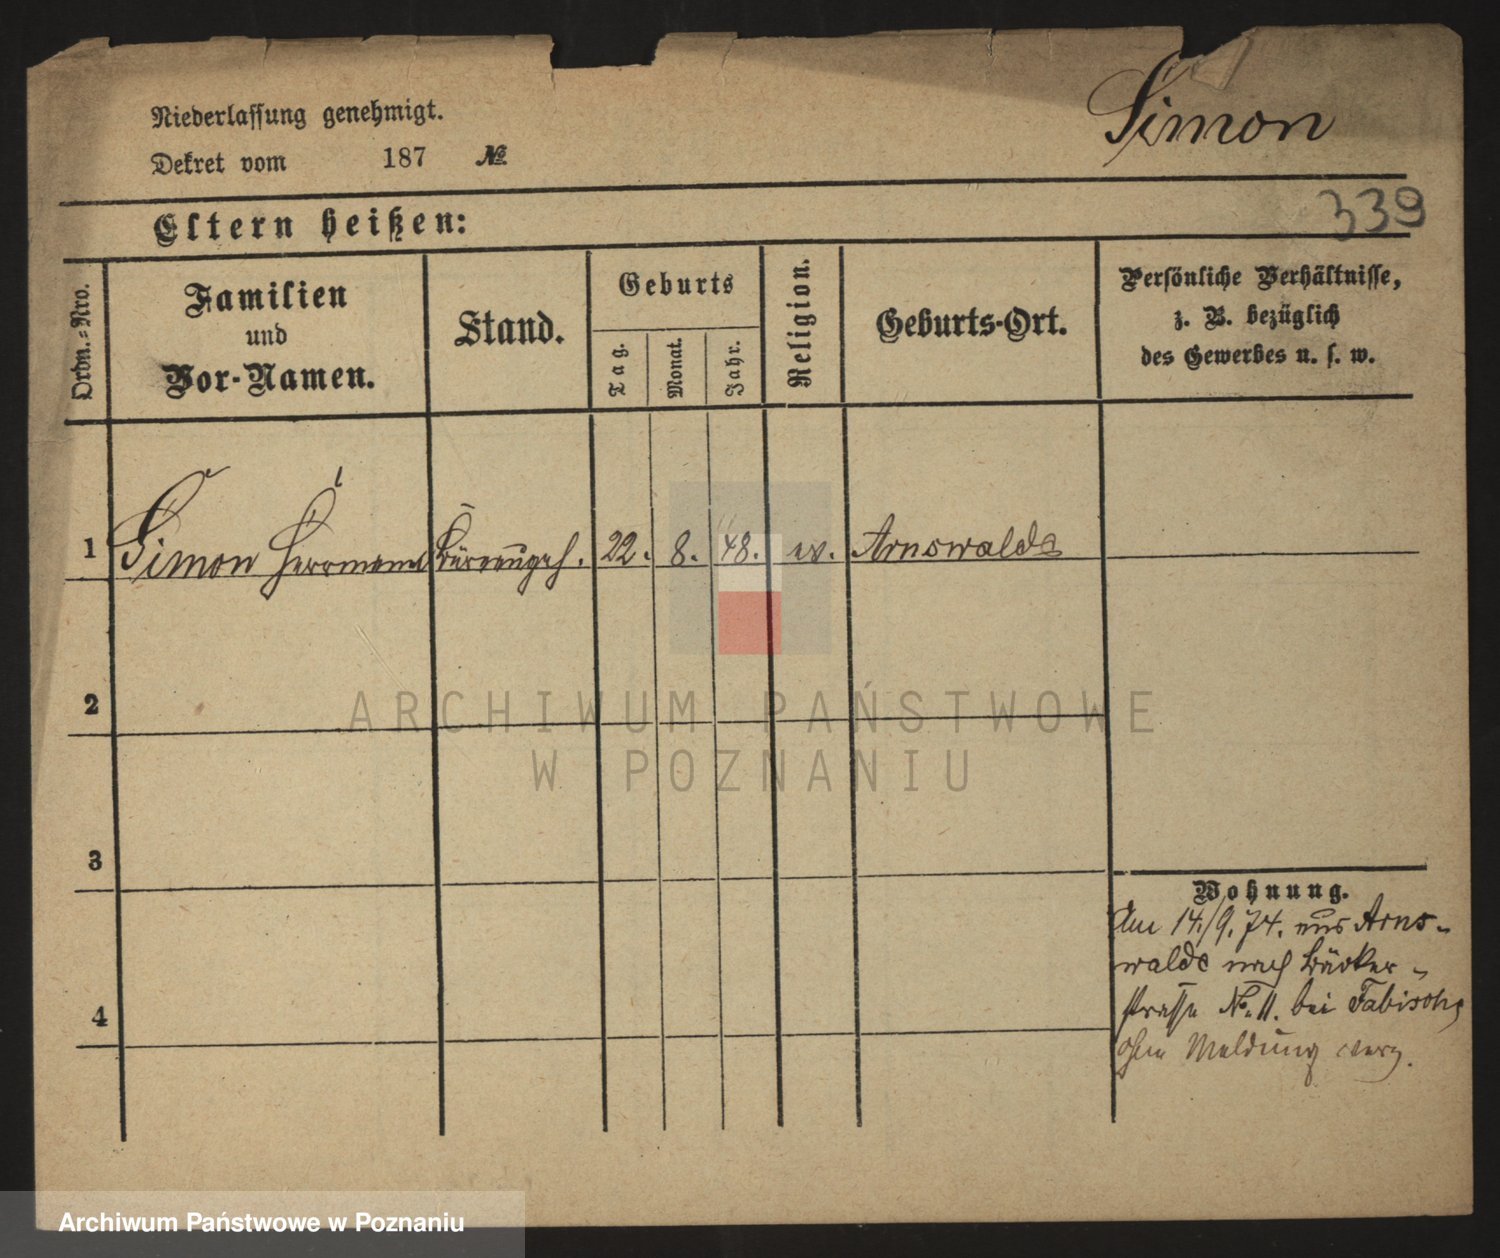 Niederlassung genehmigt.
Simon
Dekret vom 187 №
339
Eltern heißen:
Ordn.-Nro.
Familien
und
Vor-Namen.
Stand.
Geburts
Tag.
Monat.
Jahr.
Religion.
Geburts-Ort.
Persönliche Verhältnisse,
z. B. bezüglich
des Gewerbes u. s. w.
1 Simon Herrmann 22. 8. 48. ev. Arnswalde
2
ARCHIWUM PAŃSTWOWE
W POZNANIU
3
Wohnung.
Am 14./9. 74. aus Arns-
walde nach Bäcker-
strasse No. 11. bei Fabisch,
4
ohne Meldung verz.
Archiwum Państwowe w Poznaniu